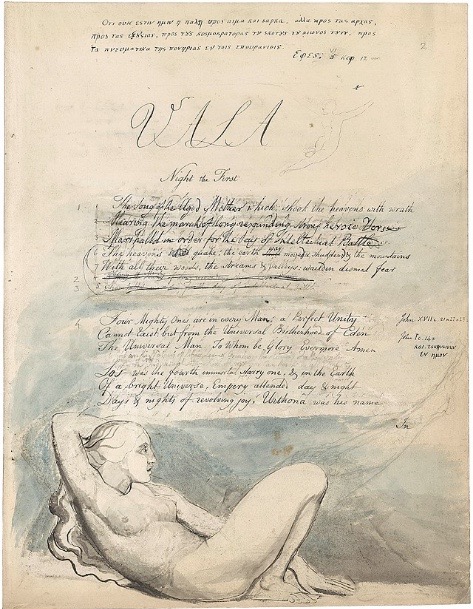 Οτι ουκ εστιν ημιν η παλη προς αιμα και σαρκα, αλλα προς τας αρχας,
προς τας εξουσιας, προς τους κοσμοκρατορας του σκοτους του αιωνος τουτου, προς
τα πνευματικα της πονηριας εν τοις επουρανιοις.
Εφες. 6 κεφ. 12
2
VALA
Night the First
1 The Song of the Aged Mother which shook the heavens with wrath
Hearing the march of long resounding strong heroic Verse
Marshalld in order for the day of Intellectual Battle
The heavens quake: the earth moves & shudders & the mountains
2 With all their woods, the streams & valleys: wail in dismal fear
3
4 Four Mighty Ones are in every Man; a Perfect Unity
Cannot Exist. but from the Universal Brotherhood of Eden
The Universal Man. To Whom be Glory Evermore Amen
John XVII c.
John I c. 14 v
και εσκηνωσεν
εν ημιν
Los was the fourth immortal starry one, & in the Earth
Of a bright Universe, Empery attended day & night
Days & nights of revolving joy, Urthona was his name
In